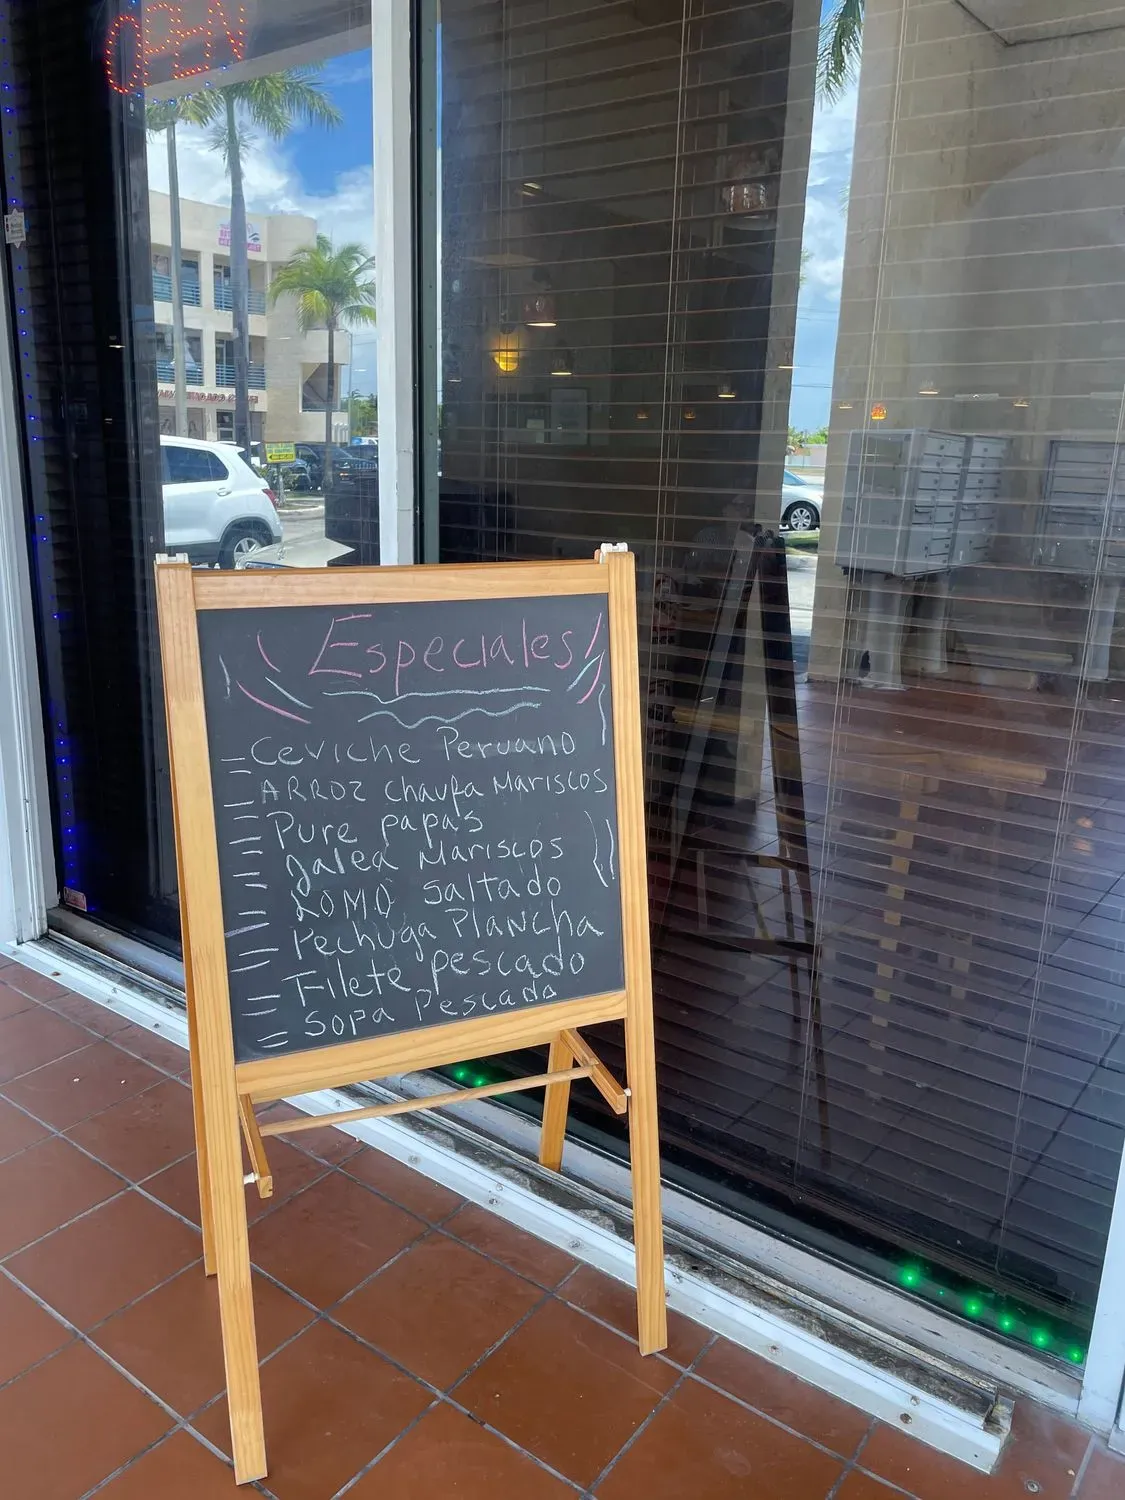 OPEN
Especiales!
Ceviche Peruano
ARROZ chaufa Mariscos
Pure papas
Jalea Mariscos
LOMO saltado
Pechuga PLANCHA
Filete pescado
SOPA Pescado